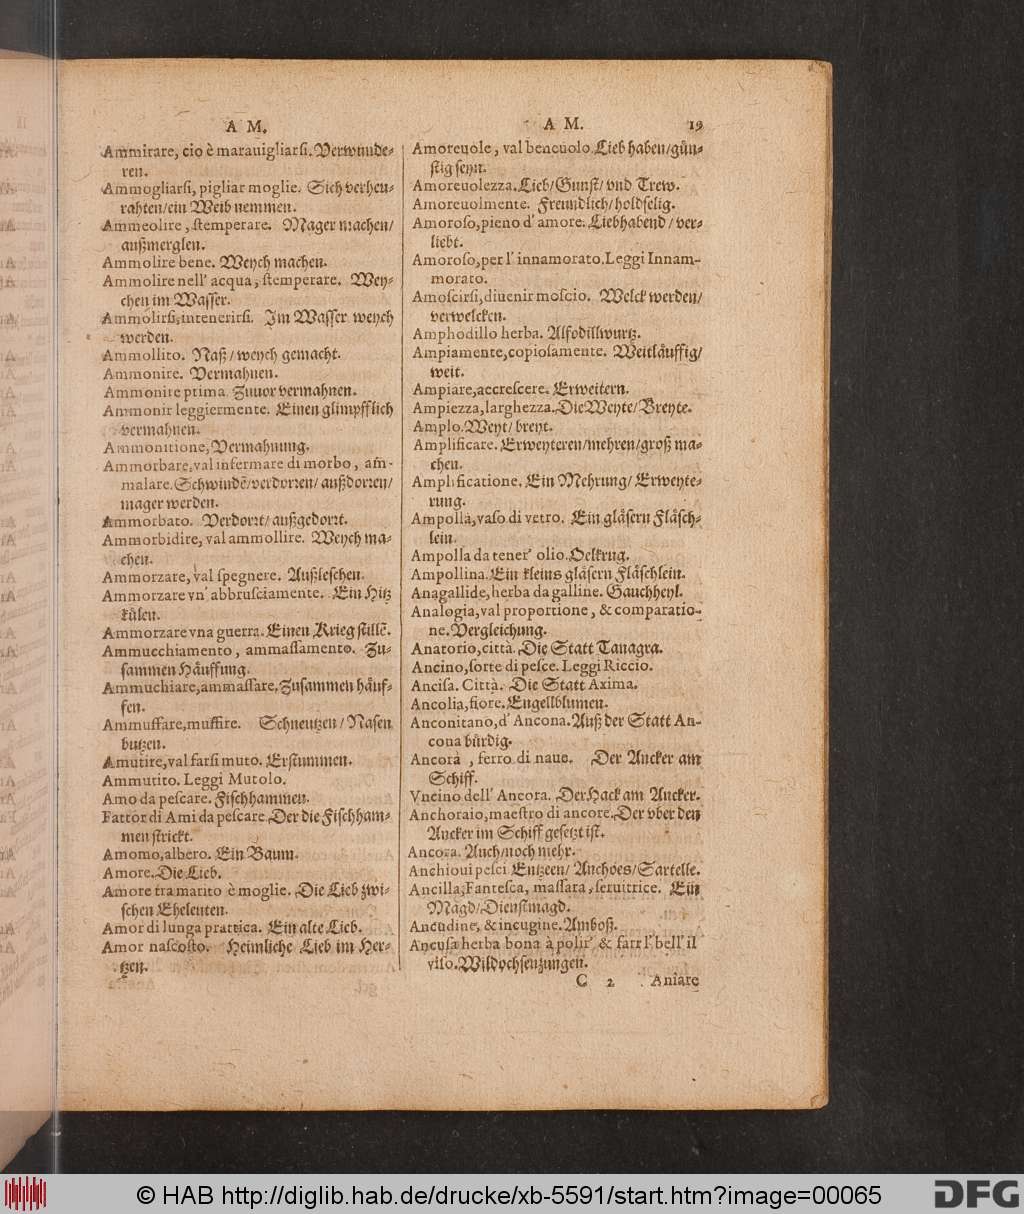 A M.
Ammirare, cio è marauigliarsi. Verwunde-
ren.
Ammogliarsi, pigliar moglie. Sich verheu-
rahten/ein Weib nemmen.
Ammeolire, stemperare. Mager machen/
außmerglen.
Ammolire bene. Weych machen.
Ammolire nell' acqua, stemperare. Wey-
chen im Wasser.
Ammolirsi, intenerirsi. Im Wasser weych
werden.
Ammollito. Naß/weych gemacht.
Ammonire. Vermahnen.
Ammonire prima. Zuuor vermahnen.
Ammonir leggiermente. Einen glimpfflich
vermahnen.
Ammonitione, Vermahnung.
Ammorbare, val infermare di morbo, am̃-
malare. Schwindẽ/verdorren/außdorren/
mager werden.
Ammorbato. Verdorrt/außgedorrt.
Ammorbidire, val ammollire. Weych ma-
chen.
Ammorzare, val spegnere. Außleschen.
Ammorzare vn' abbrusciamente. Ein Hitz
külen.
Ammorzare vna guerra. Einen Krieg stillẽ.
Ammucchiamento, ammassamento. Zu-
sammen Häuffung.
Ammuchiare, ammassare, Zusammen häuf-
fen.
Ammuffare, muffire. Schneutzen/Nasen
butzen.
Amutire, val farsi muto. Erstummen.
Ammutito. Leggi Mutolo.
Amo da pescare. Fischhammen.
Fattor di Ami da pescare. Der die Fischham-
men strickt.
Amomo, albero. Ein Baum.
Amore. Die Lieb.
Amore tra marito è moglie. Die Lieb zwi-
schen Eheleuten.
Amor di lunga prattica. Ein alte Lieb.
Amor nascosto. Heimliche Lieb im Her-
tzen.
A M. 19
Amoreuole, val beneuolo. Lieb haben/gün-
stig seyn.
Amoreuolezza. Lieb/Gunst/vnd Trew.
Amoreuolmente. Freundlich/holdselig.
Amoroso, pieno d' amore. Liebhabend/ver-
liebt.
Amoroso, per l' innamorato. Leggi Innam-
morato.
Amoscirsi, diuenir moscio. Welck werden/
verwelcken.
Amphodillo herba. Alfodillwurtz.
Ampiamente, copiosamente. Weitläuffig/
weit.
Ampiare, accrescere. Erweitern.
Ampiezza, larghezza. Die Weyte/Breyte.
Amplo. Weyt/breyt.
Amplificare. Erweyteren/mehren/groß ma-
chen.
Amplificatione. Ein Mehrung/Erweyte-
rung.
Ampolla, vaso di vetro. Ein gläsern Fläsch-
lein.
Ampolla da tener' olio. Oelkrug.
Ampollina. Ein kleins gläsern Fläschlein.
Anagallide, herba da galline. Gauchheyl.
Analogia, val proportione, & comparatio-
ne. Vergleichung.
Anatorio, città. Die Statt Tanagra.
Ancino, sorte di pesce. Leggi Riccio.
Ancisa. Città. Die Statt Axima.
Ancolia, fiore. Engellblumen.
Anconitano, d' Ancona. Auß der Statt An-
cona bürdig.
Ancora, ferro di naue. Der Ancker am
Schiff.
Vncino dell' Ancora. Der Hack am Ancker.
Anchoraio, maestro di ancore. Der vber den
Ancker im Schiff gesetzt ist.
Ancora. Auch/noch mehr.
Anchioui pesci Entzeen/Anchoes/Sartelle.
Ancilla, Fantesca, massara, seruitrice. Ein
Magd/Dienstmagd.
Ancudine, & incugine. Amboß.
Ancusa herba bona à polir', & farr l' bell' il
viso. Wildochsenzungen.
C 2 Aniare
© HAB http://diglib.hab.de/drucke/xb-5591/start.htm?image=00065
DFG